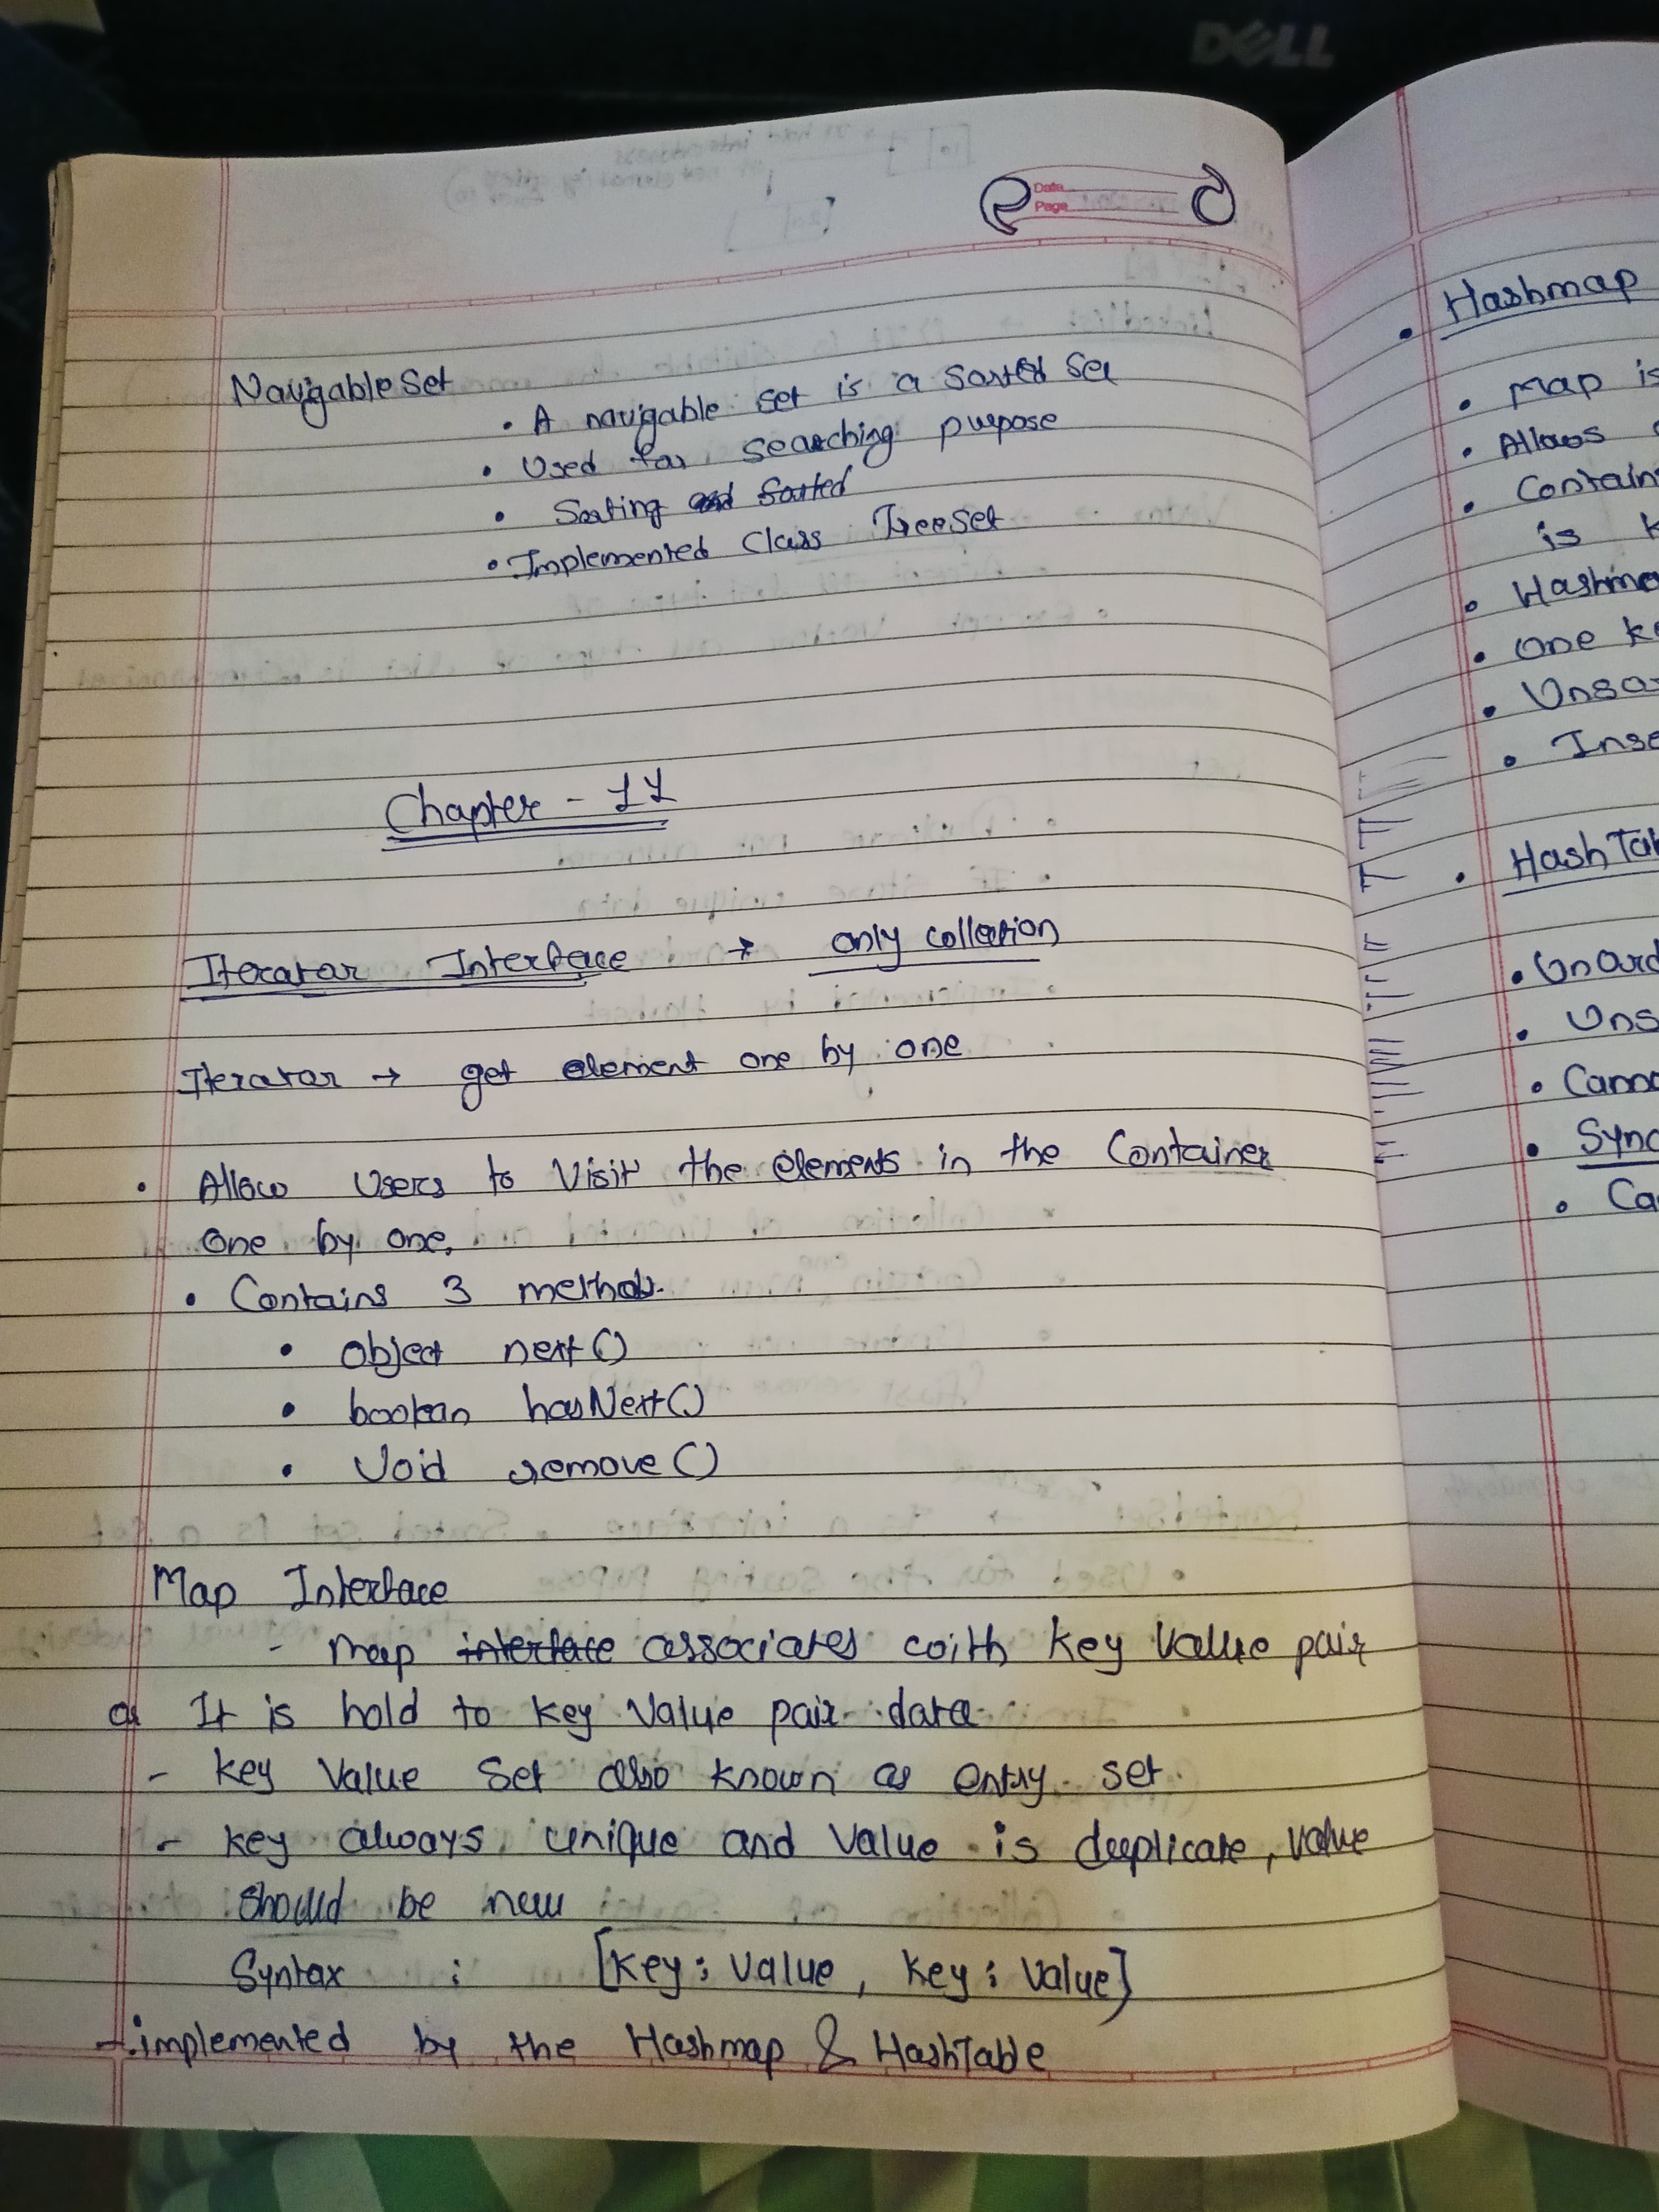 DELL
Date
Page
Navigable Set
• A navigable set is a sorted set
• Used for searching purpose
• Sorting Sorted
• Implemented Class TreeSet
Chapter - 11
Iterator Interface → only collection
Iterator → get element one by one
• Allow Users to Visit the elements in the Container
one by one.
• Contains 3 methods.
• object next()
• boolean hasNext()
• Void remove()
Map Interface
- Map interface associates with key value pair
It is hold to key Value pair data
- key Value Set also known as entry set.
- key always unique and value is duplicate, value
should be new
Syntax : [key : value , key : value]
- implemented by the Hashmap & HashTable
• Hashmap
• Map is
• Allows
• Contain
is
•
• One
•
•
•
•
•
•
•
•